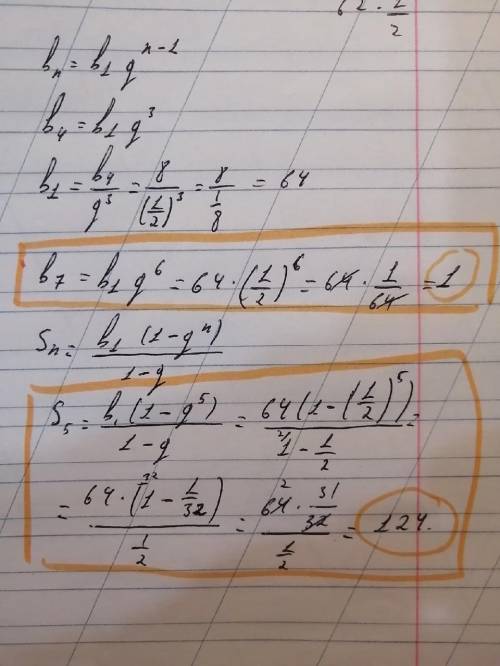 62 · 1/2
bₙ = b₁ qⁿ⁻¹
b₄ = b₁ q³
b₁ = b₄/q³ = 8/(1/2)³ = 8/(1/8) = 64
b₇ = b₁ q⁶ = 64 · (1/2)⁶ = 64 · 1/64 = 1
Sₙ = b₁ (1-qⁿ)/(1-q)
S₅ = b₁ (1-q⁵)/(1-q) = 64(1-(1/2)⁵)/(²1 - 1/2) =
= 64 · (³²1 - 1/32)/(1/2) = 64² · 31/32/(1/2) = 124.